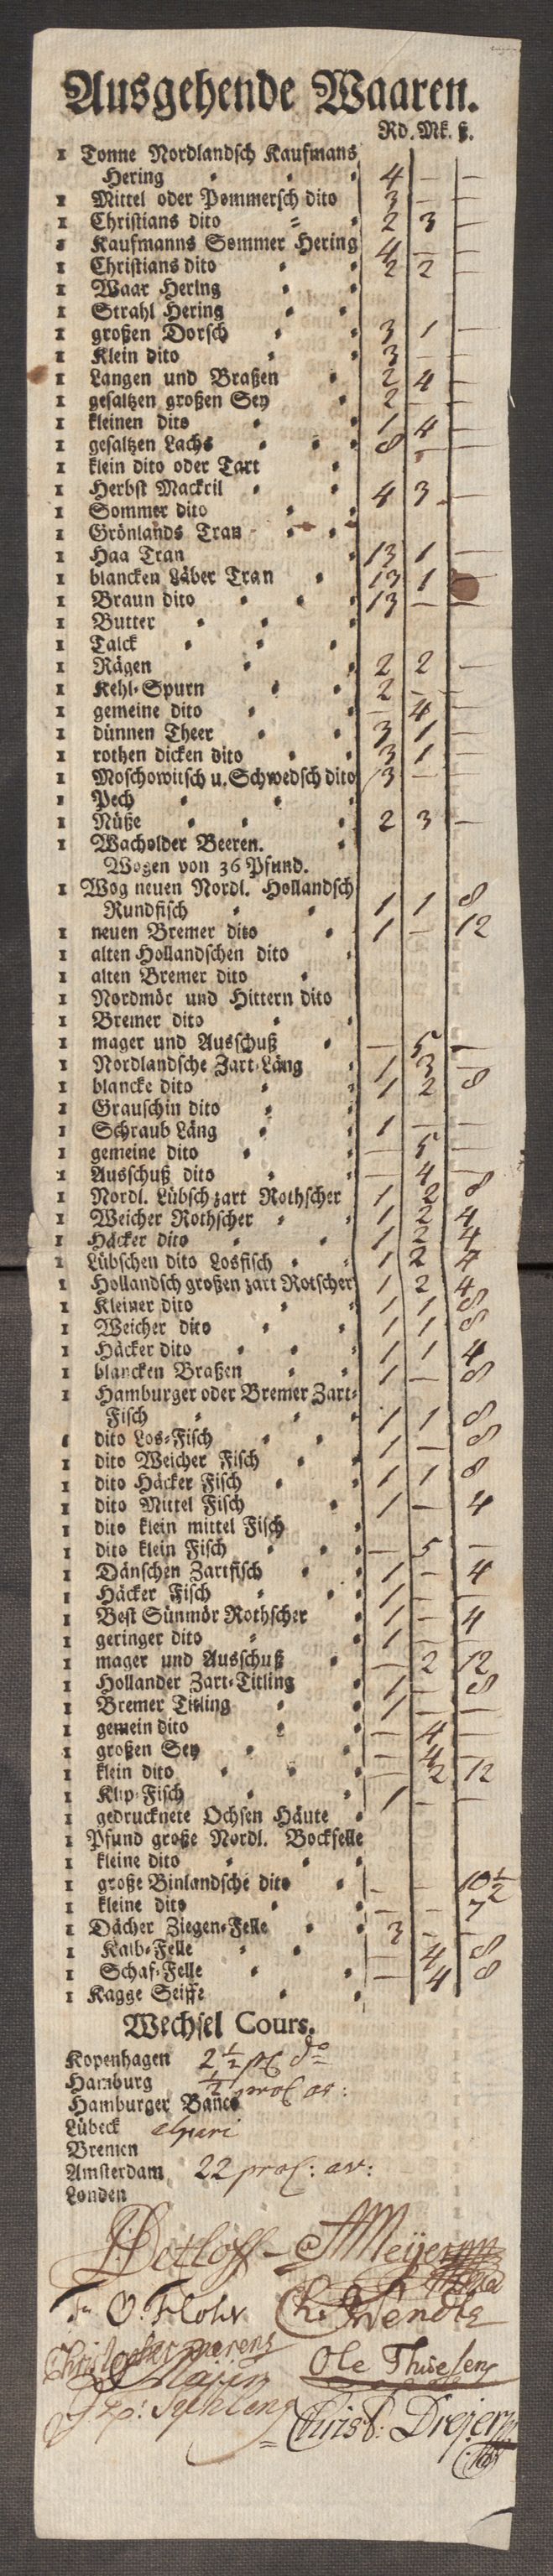 Ausgehende Waaren.
Rd. Mk. ß.
1 Tonne Nordlandsch Kaufmans
Hering 4 — —
1 Mittel oder Pommersch dito 3 — —
1 Christians dito 2 3 —
1 Kaufmanns Sommer Hering 4 — —
1 Christians dito 2 2 —
1 Waar Hering
1 Strahl Hering
1 großen Dorsch 3 1 —
1 Klein dito 3 — —
1 Langen und Braßen 2 4 —
1 gesaltzen großen Sey 2 — —
1 kleinen dito 1 4 —
1 gesaltzen Lachs 8 — —
1 klein dito oder Tart
1 Herbst Mackril 4 3 —
1 Sommer dito
1 Grönlands Tran
1 Haa Tran 13 1 —
1 blancken Läber Tran 13 1
1 Braun dito 13 — —
1 Butter
1 Talck
1 Rägen 2 2 —
1 Kehl-Spurn 2 — —
1 gemeine dito — 4 —
1 dünnen Theer 3 1 —
1 rothen dicken dito 3 1 —
1 Moschowitsch u. Schwedsch dito 3 — —
1 Pech
1 Nüße 2 3 —
1 Wacholder Beeren.
Wogen von 36 Pfund.
1 Wog neuen Nordl. Hollandsch
Rundfisch 1 1 8
1 neuen Bremer dito 1 — 12
1 alten Hollandschen dito
1 alten Bremer dito
1 Nordmör und Hittern dito
1 Bremer dito
1 mager und Ausschuß — 5 —
1 Nordlandsche Zart-Läng 1 3 —
1 blancke dito 1 2 8
1 Grauschin dito
1 Schraub Läng 1 — —
1 gemeine dito — 5 —
1 Ausschuß dito — 4 —
1 Nordl. Lübsch zart Rothscher 1 2 8
1 Weicher Rothscher 1 2 4
1 Häcker dito 1 2 4
1 Lübschen dito Losfisch 1 2 4
1 Hollandsch großen zart Rotscher 1 2 4
1 Kleiner dito 1 1 8
1 Weicher dito 1 1 8
1 Häcker dito 1 1 4
1 blancken Braßen 1 — 8
1 Hamburger oder Bremer Zart-
Fisch 1 1 8
1 dito Los-Fisch 1 — 8
1 dito Weicher Fisch
1 dito Häcker Fisch 1 1 8
1 dito Mittel Fisch 1 — 4
1 dito klein mittel Fisch
1 dito klein Fisch — 5 —
1 Dänschen Zartfisch 1 — 4
1 Häcker Fisch 1 — —
1 Best Sünmör Rothscher 1 — 4
1 geringer dito 1 — —
1 mager und Ausschuß — 2 12
1 Hollander Zart-Titling 1 — 8
1 Bremer Titling 1 — —
1 gemein dito — 4 —
1 großen Sey — 4 —
1 klein dito — 2 12
1 Klip-Fisch 1 — —
1 gedrucknete Ochsen Häute
1 Pfund große Nordl. Bockfelle
1 kleine dito
1 große Binlandsche dito — — 10½
1 kleine dito — — 7
1 Dächer Ziegen-Felle 3 — —
1 Kalb-Felle — 4 8
1 Schaf-Felle — 4 8
1 Kagge Seiffe
Wechsel Cours.
Kopenhagen 2½
Hamburg ½
Hamburger Banco
Lübeck alpari
Bremen
Amsterdam 22
Londen
Detloff Meÿer
O. Flohr Wendte
Ole Thuesen
Christ: Drejer